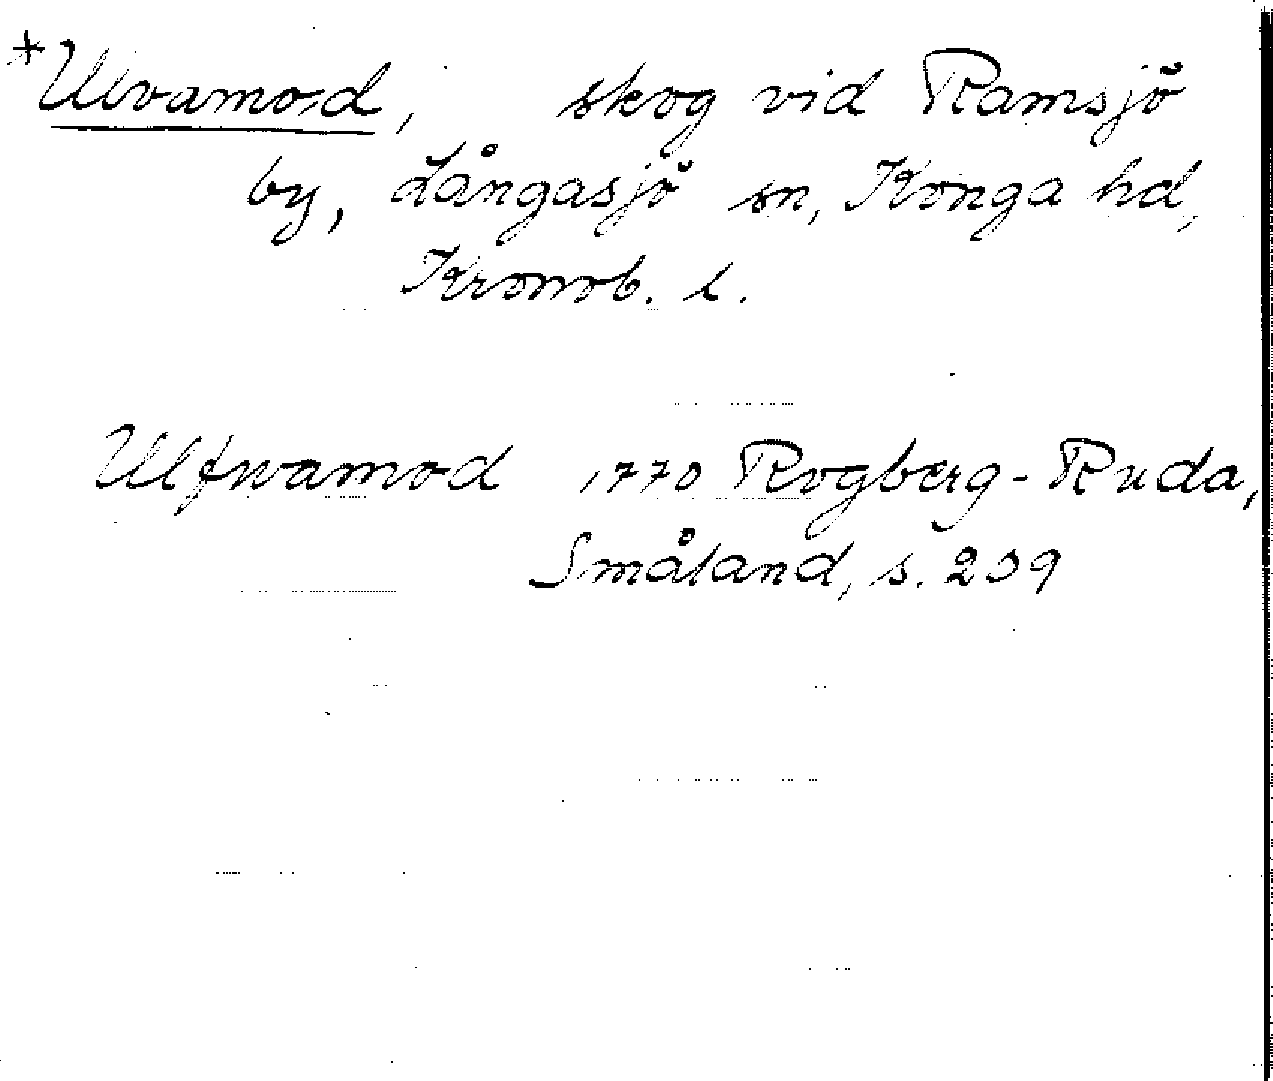 *Ulvamod, skog vid Ramsjö
by, Långasjö sn, Konga hd,
Kronob. l.
Ulfwamod 1770 Rogberg-Ruda,
Småland, s. 239